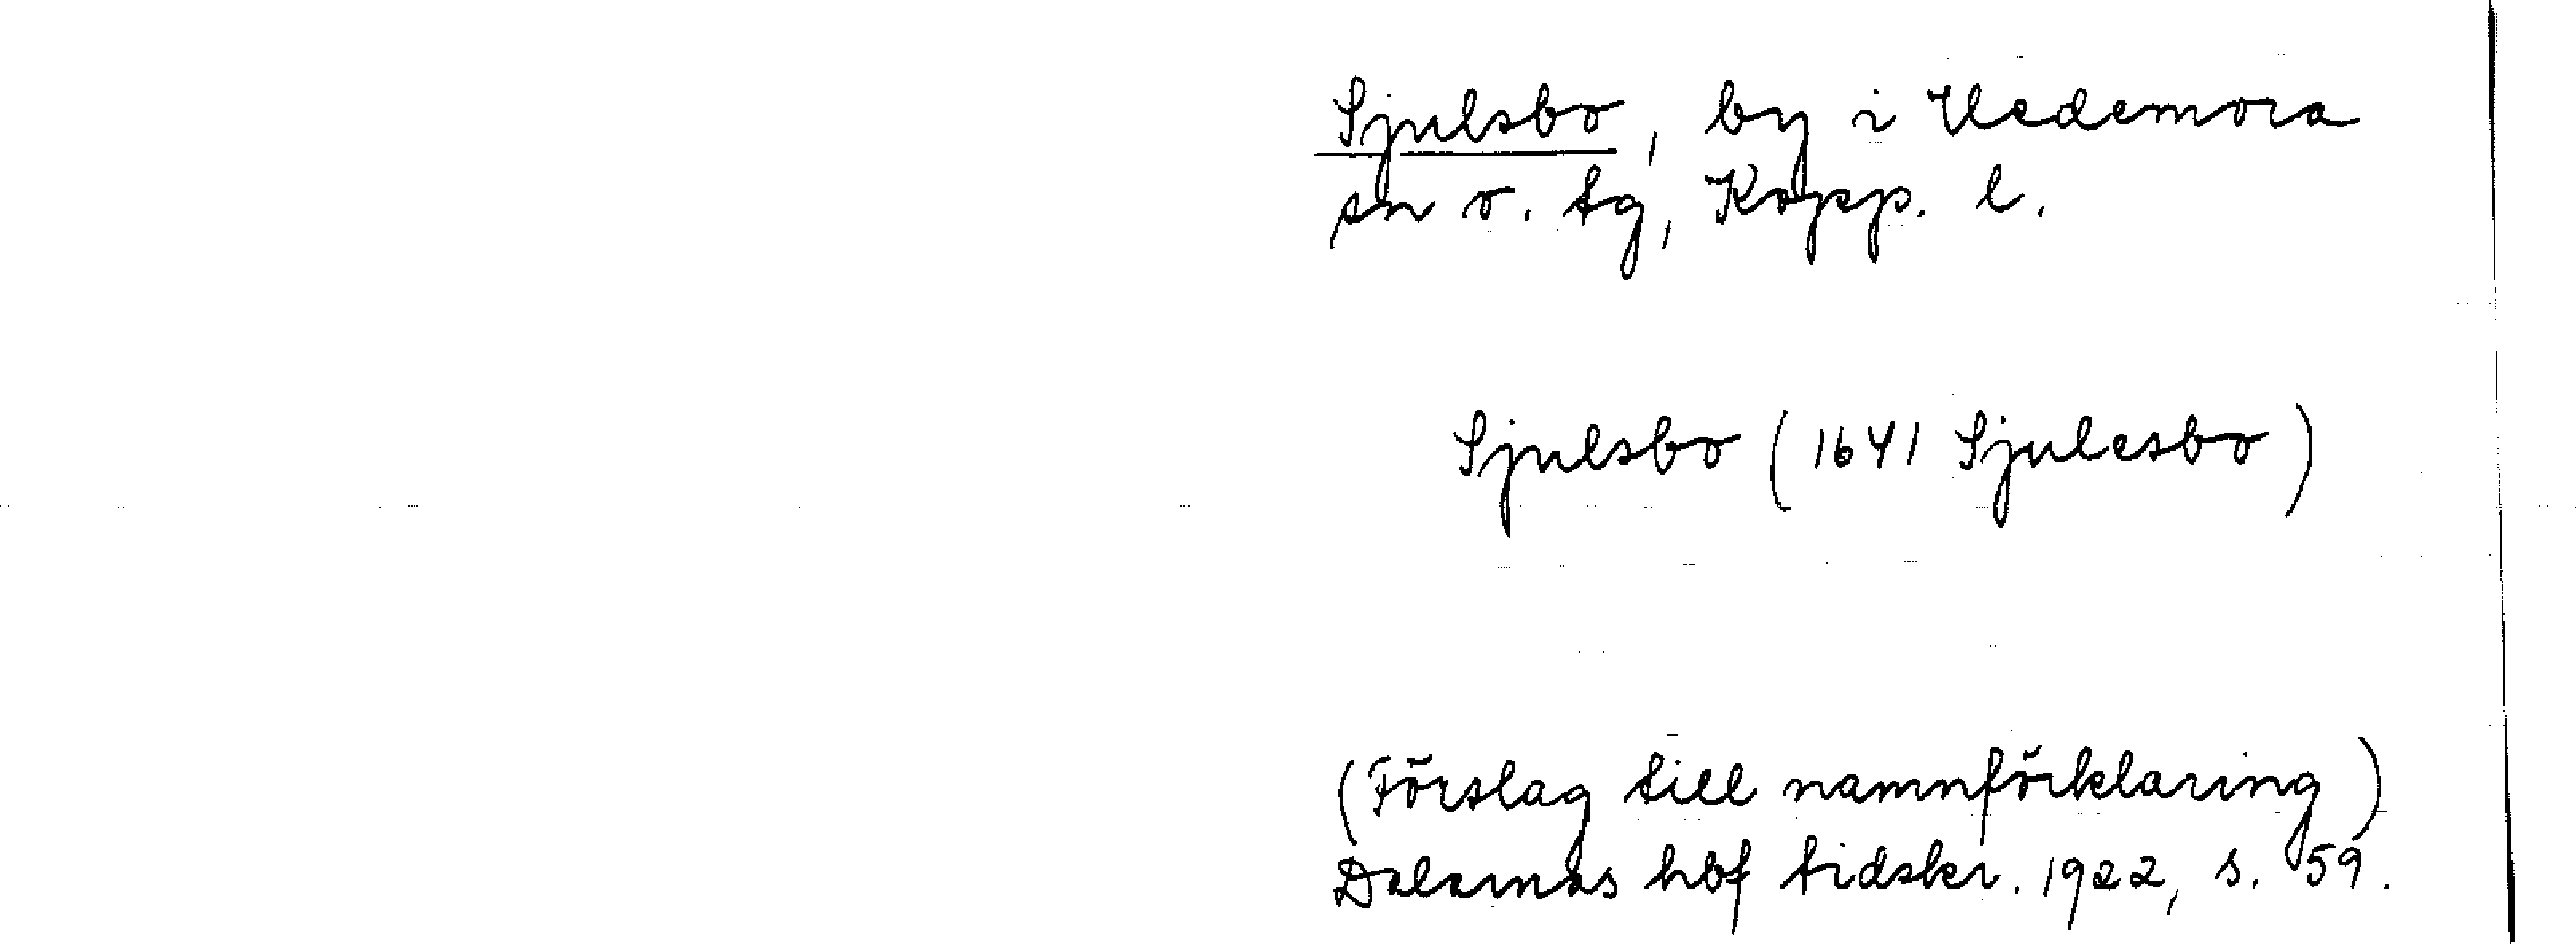 Sjulsbo, by i Hedemora
sn o. tg, Kopp. l.
Sjulsbo (1641 Sjulesbo)
(Förslag till namnförklaring)
Dalarnas hbf tidskr. 1922, s. 59.